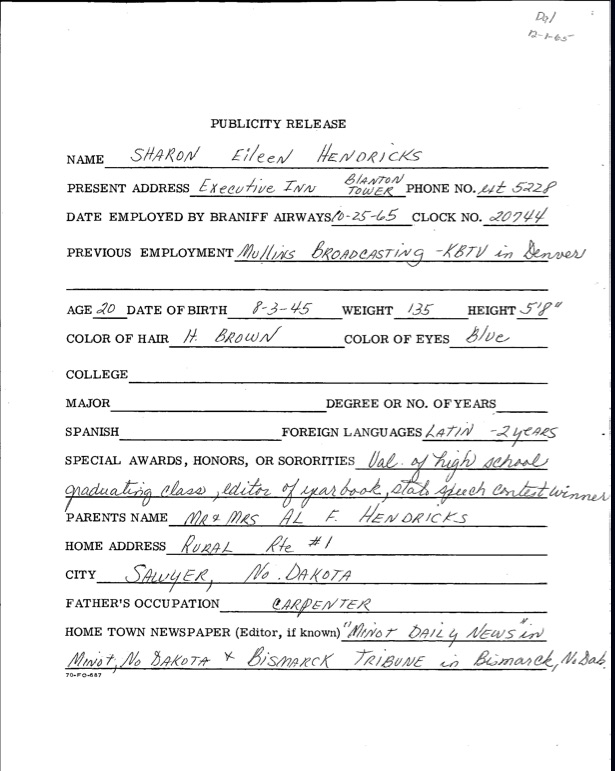 Dal
12-1-65
PUBLICITY RELEASE
NAME SHARON Eileen HENDRICKS
PRESENT ADDRESS Executive INN BLANTON TOWER PHONE NO. ext 5228
DATE EMPLOYED BY BRANIFF AIRWAYS 10-25-65 CLOCK NO. 20744
PREVIOUS EMPLOYMENT Mullins BROADCASTING - KBTV in Denver
AGE 20 DATE OF BIRTH 8-3-45 WEIGHT 135 HEIGHT 5'8"
COLOR OF HAIR lt. BROWN COLOR OF EYES Blue
COLLEGE
MAJOR DEGREE OR NO. OF YEARS
SPANISH FOREIGN LANGUAGES LATIN - 2 yeARS
SPECIAL AWARDS, HONORS, OR SORORITIES Val. of high school
graduating class, editor of yearbook, state speech contest winner
PARENTS NAME MR & MRS AL F. HENDRICKS
HOME ADDRESS RURAL Rte #1
CITY SAWYER, No. DAKOTA
FATHER'S OCCUPATION CARPENTER
HOME TOWN NEWSPAPER (Editor, if known) "MINOT DAILY NEWS" in
Minot, No DAKOTA & BISMARCK TRIBUNE in Bismarck, No Dak.
70-FO-687